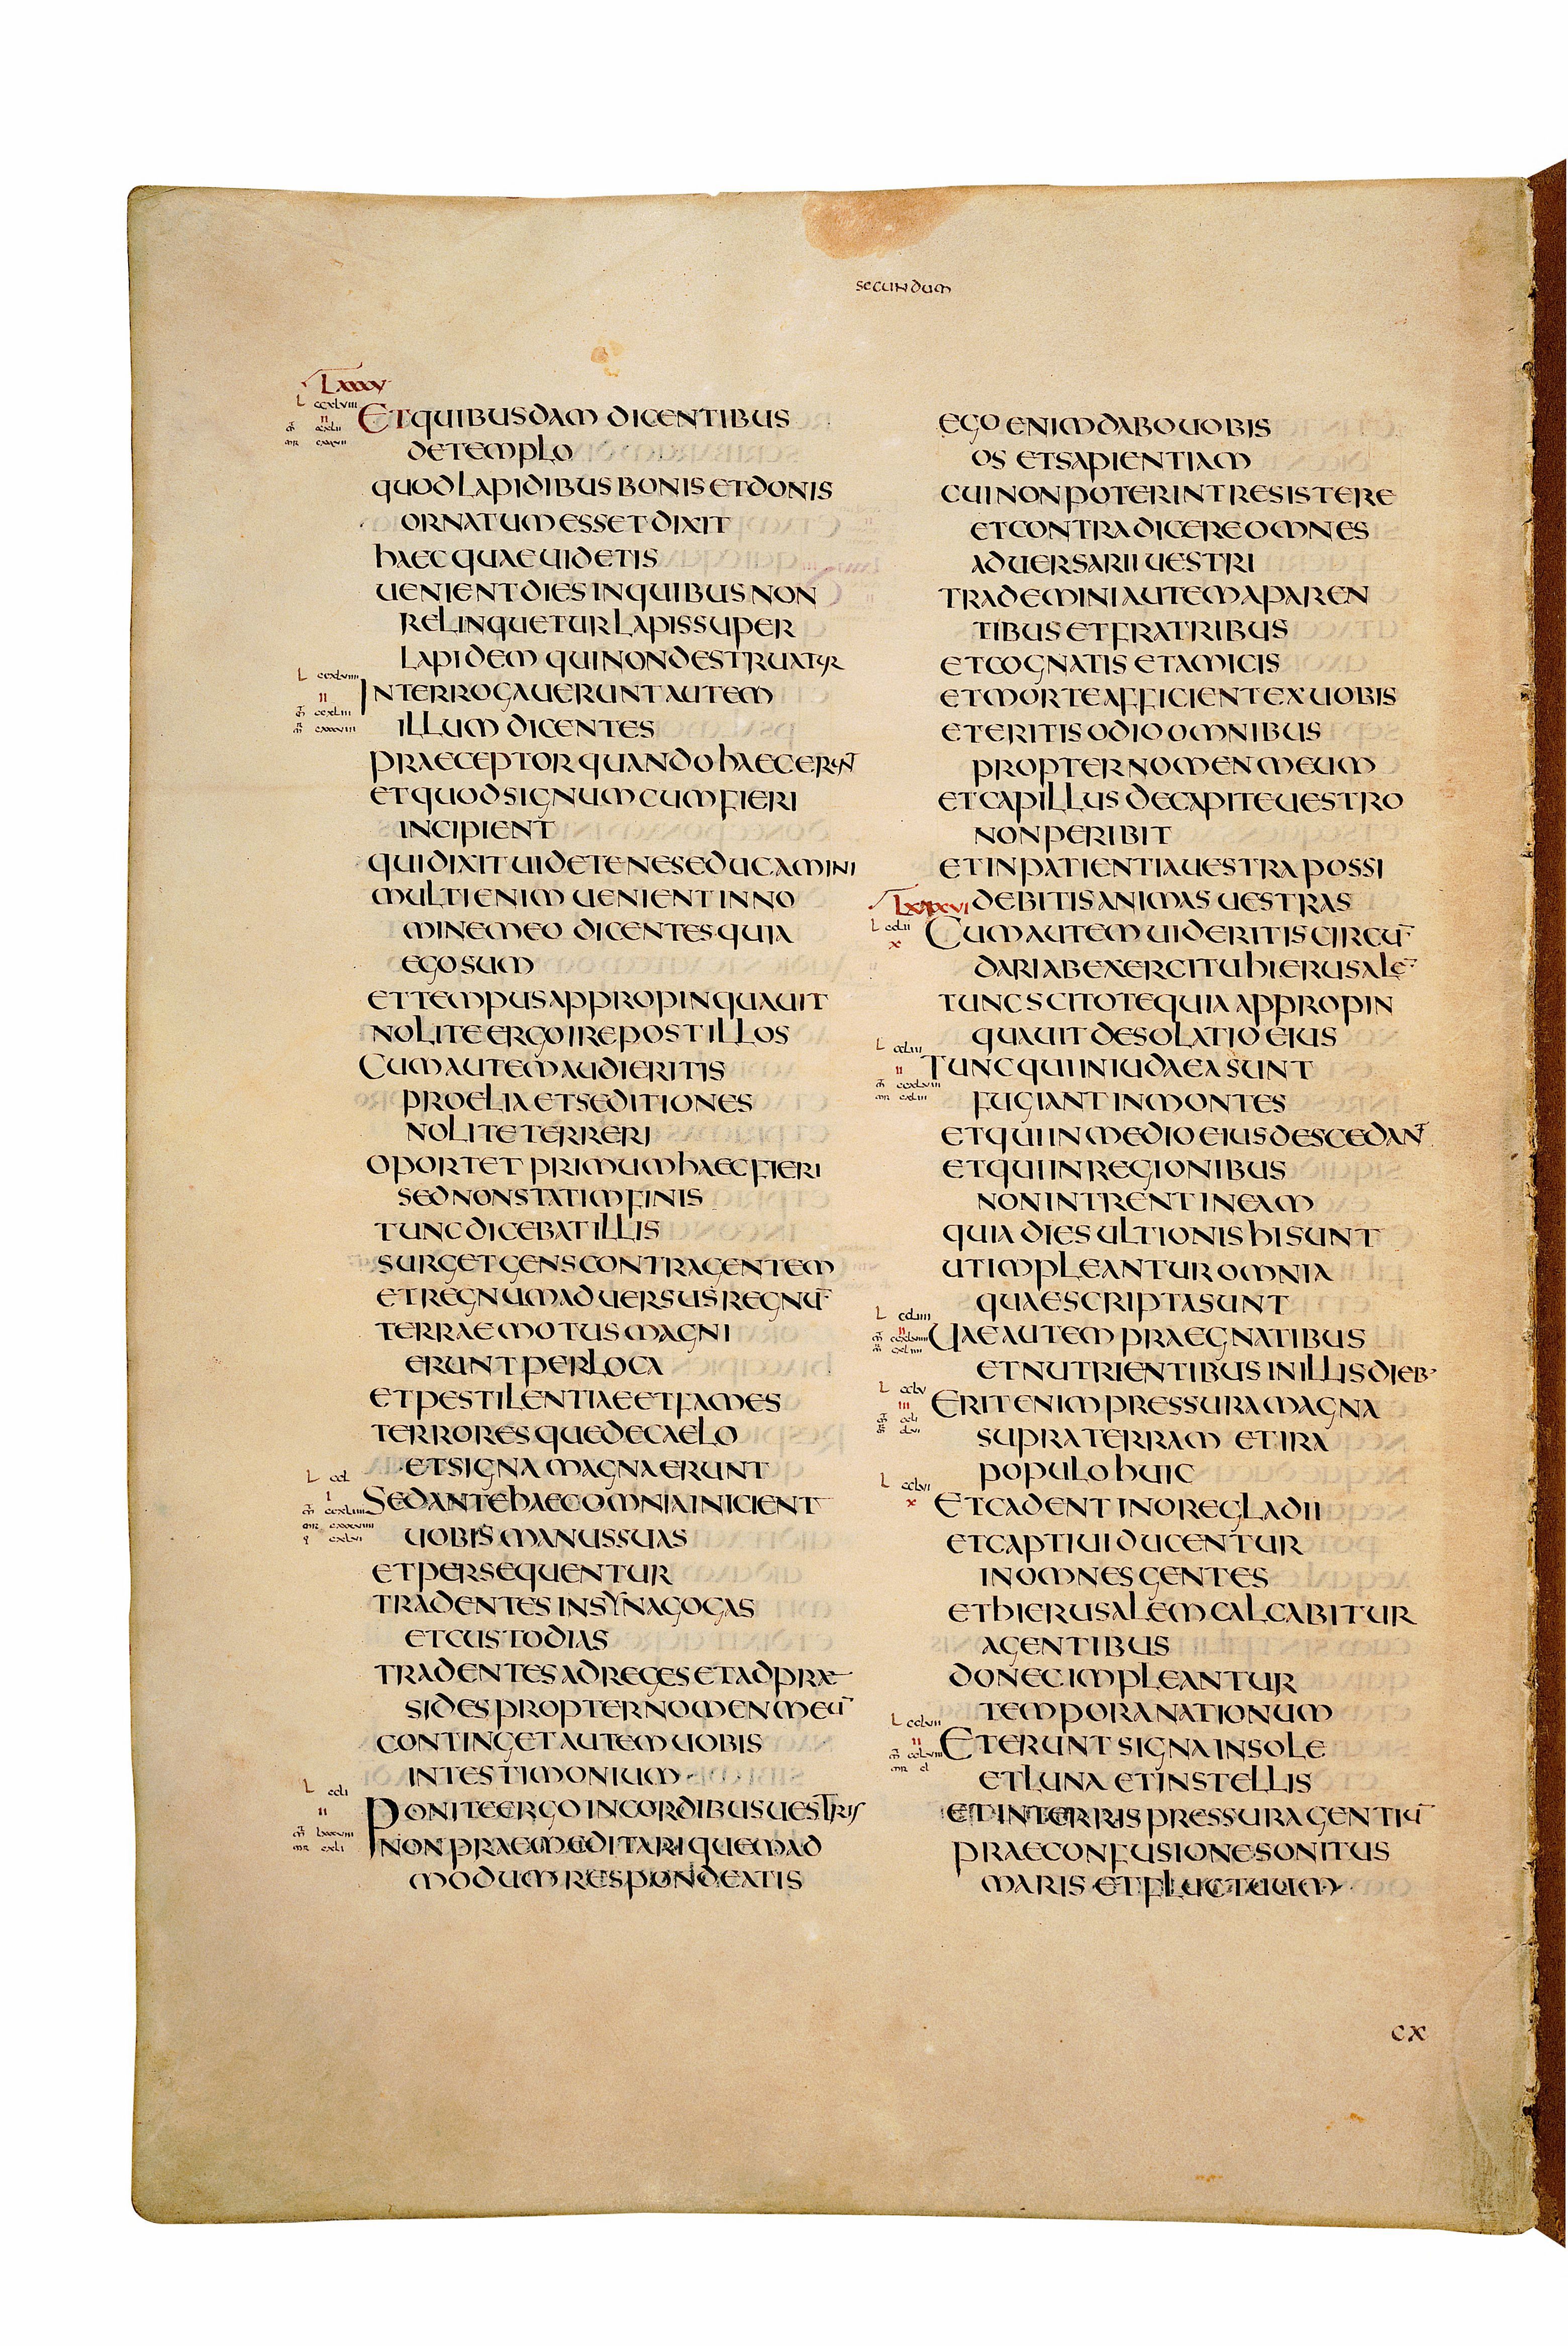 secundum
Lxxxv
L ccxlviii
ET QUIBUSDAM DICENTIBUS
DE TEMPLO
QUOD LAPIDIBUS BONIS ET DONIS
ORNATUM ESSET DIXIT
HAEC QUAE UIDETIS
UENIENT DIES IN QUIBUS NON
RELINQUETUR LAPIS SUPER
LAPIDEM QUI NON DESTRUATUR
L ccxlviiii
II
INTERROGAUERUNT AUTEM
ILLUM DICENTES
PRAECEPTOR QUANDO HAEC ERUNT
ET QUOD SIGNUM CUM FIERI
INCIPIENT
QUI DIXIT UIDETE NE SEDUCAMINI
MULTI ENIM UENIENT IN NO
MINE MEO DICENTES QUIA
EGO SUM
ET TEMPUS APPROPINQUAUIT
NOLITE ERGO IRE POST ILLOS
CUM AUTEM AUDIERITIS
PROELIA ET SEDITIONES
NOLITE TERRERI
OPORTET PRIMUM HAEC FIERI
SED NON STATIM FINIS
TUNC DICEBAT ILLIS
SURGET GENS CONTRA GENTEM
ET REGNUM ADUERSUS REGNŪ
TERRAE MOTUS MAGNI
ERUNT PER LOCA
ET PESTILENTIAE ET FAMES
TERRORESQUE DE CAELO
ET SIGNA MAGNA ERUNT
L ccl
I
SED ANTE HAEC OMNIA INICIENT
UOBIS MANUS SUAS
ET PERSEQUENTUR
TRADENTES IN SYNAGOGAS
ET CUSTODIAS
TRADENTES AD REGES ET AD PRAE
SIDES PROPTER NOMEN MEŪ
CONTINGET AUTEM UOBIS
IN TESTIMONIUM
L ccli
II
PONITE ERGO IN CORDIBUS UESTRIS
NON PRAEMEDITARI QUEMAD
MODUM RESPONDEATIS
EGO ENIM DABO UOBIS
OS ET SAPIENTIAM
CUI NON POTERINT RESISTERE
ET CONTRADICERE OMNES
ADUERSARII UESTRI
TRADEMINI AUTEM A PAREN
TIBUS ET FRATRIBUS
ET COGNATIS ET AMICIS
ET MORTE AFFICIENT EX UOBIS
ET ERITIS ODIO OMNIBUS
PROPTER NOMEN MEUM
ET CAPILLUS DE CAPITE UESTRO
NON PERIBIT
ET IN PATIENTIA UESTRA POSSI
DEBITIS ANIMAS UESTRAS
Lxxxvi
L cclii
x
CUM AUTEM UIDERITIS CIRCŪ
DARI AB EXERCITU HIERUSALĒ
TUNC SCITOTE QUIA APPROPIN
QUAUIT DESOLATIO EIUS
L ccliii
II
TUNC QUI IN IUDAEA SUNT
FUGIANT IN MONTES
ET QUI IN MEDIO EIUS DESCEDANT
ET QUI IN REGIONIBUS
NON INTRENT IN EAM
QUIA DIES ULTIONIS HI SUNT
UT IMPLEANTUR OMNIA
QUAE SCRIPTA SUNT
L ccliiii
II
UAE AUTEM PRAEGNATIBUS
ET NUTRIENTIBUS IN ILLIS DIEB·
L cclv
III
ERIT ENIM PRESSURA MAGNA
SUPRA TERRAM ET IRA
POPULO HUIC
L cclvi
x
ET CADENT IN ORE GLADII
ET CAPTIUI DUCENTUR
IN OMNES GENTES
ET HIERUSALEM CALCABITUR
A GENTIBUS
DONEC IMPLEANTUR
TEMPORA NATIONUM
L cclvii
II
ET ERUNT SIGNA IN SOLE
ET LUNA ET IN STELLIS
ET IN TERRIS PRESSURA GENTIŪ
PRAE CONFUSIONE SONITUS
MARIS ET FLUCTUUM
CX